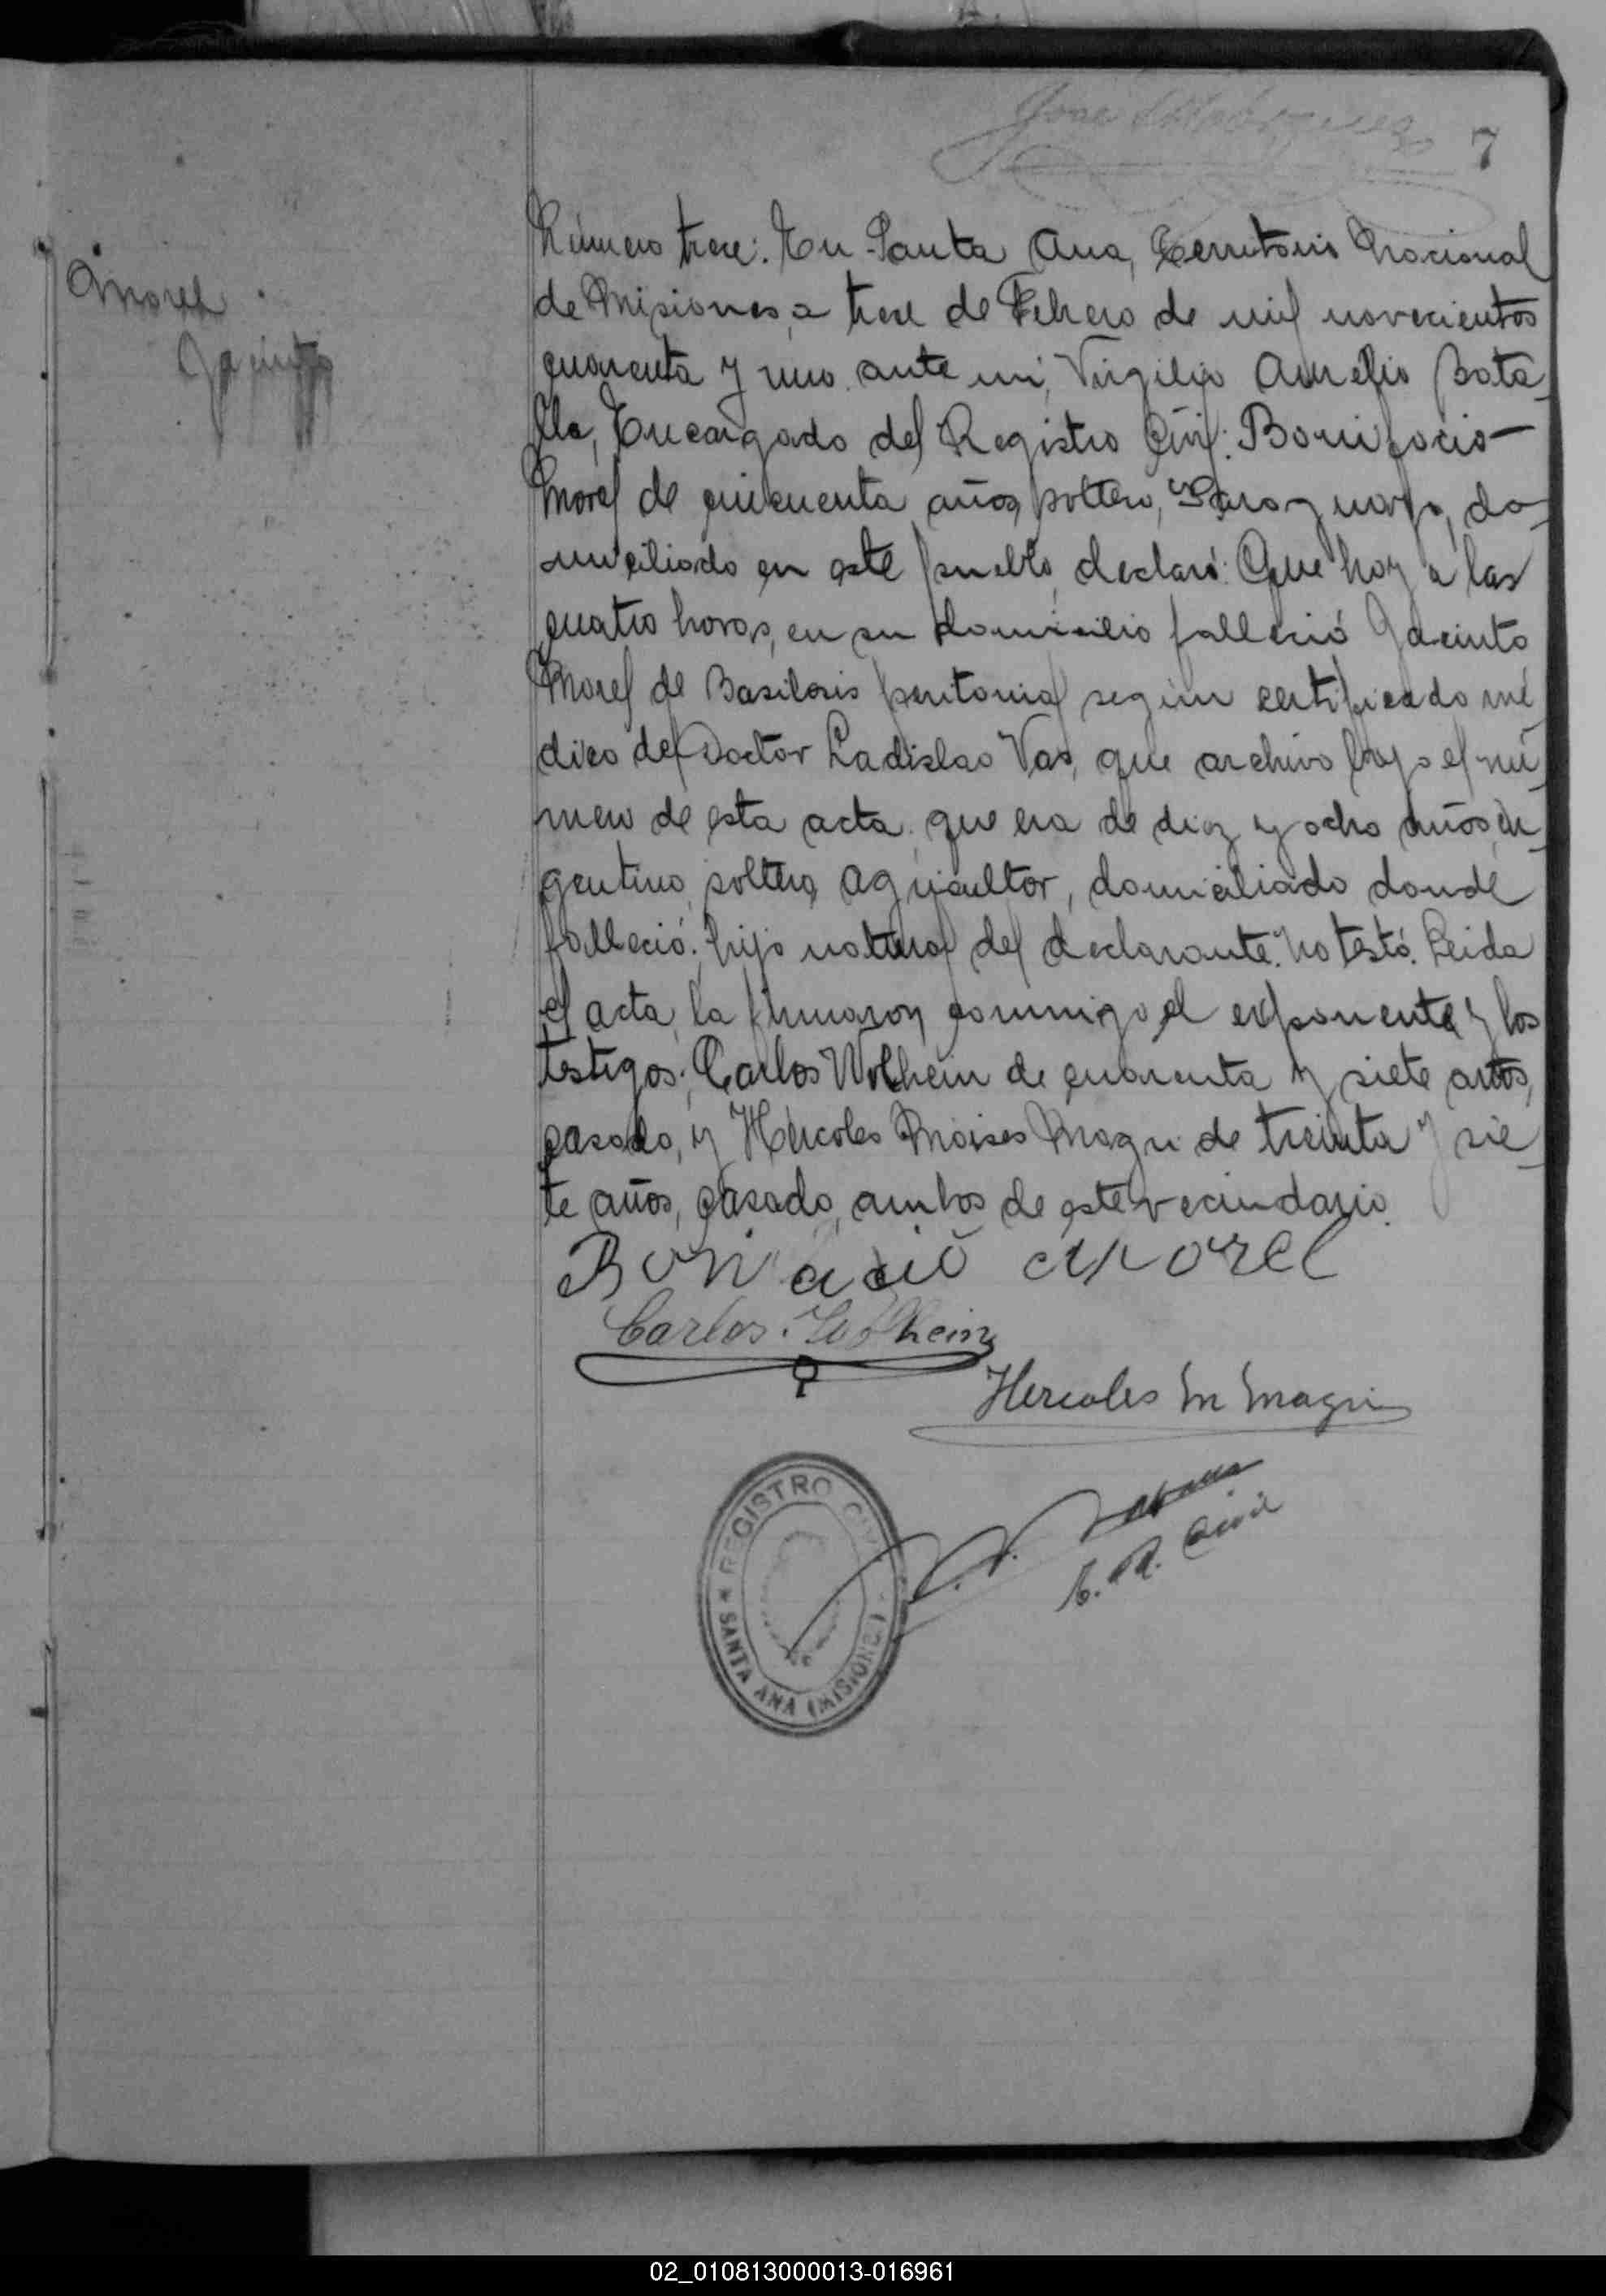 7
Morel
Jacinto
Número trece: En Santa Ana, Territorio Nacional
de Misiones, a trece de Febrero de mil novecientos
cuarenta y uno ante mi, Virgilio Aurelio
Encargado del Registro Civil: Bonifacio
Morel de cincuenta años, soltero, Paraguayo, do-
miciliado en este pueblo, declaró: Que hoy a las
cuatro horas, en su domicilio falleció Jacinto
Morel de Basilosis peritonial según certificado mé
dico del Doctor Ladislao Vas, que archivo bajo el nú
mero de esta acta, que era de diez y ocho años, ar-
gentino, soltero, agricultor, domiciliado donde
falleció; hijo natural del declarante. No testó. Leida
el acta, la firmaron conmigo el exponente y los
testigos; Carlos Wolhein de cuarenta y siete años,
casado, y Hércoles Moises Magri de treinta y sie-
te años, casado, ambos de este vecindario.
Bonifacio Morel
Carlos Wolhein
Hercoles M Magri
E. R. Civil
REGISTRO CIVIL
* SANTA ANA (MISIONES)
02_010813000013-016961